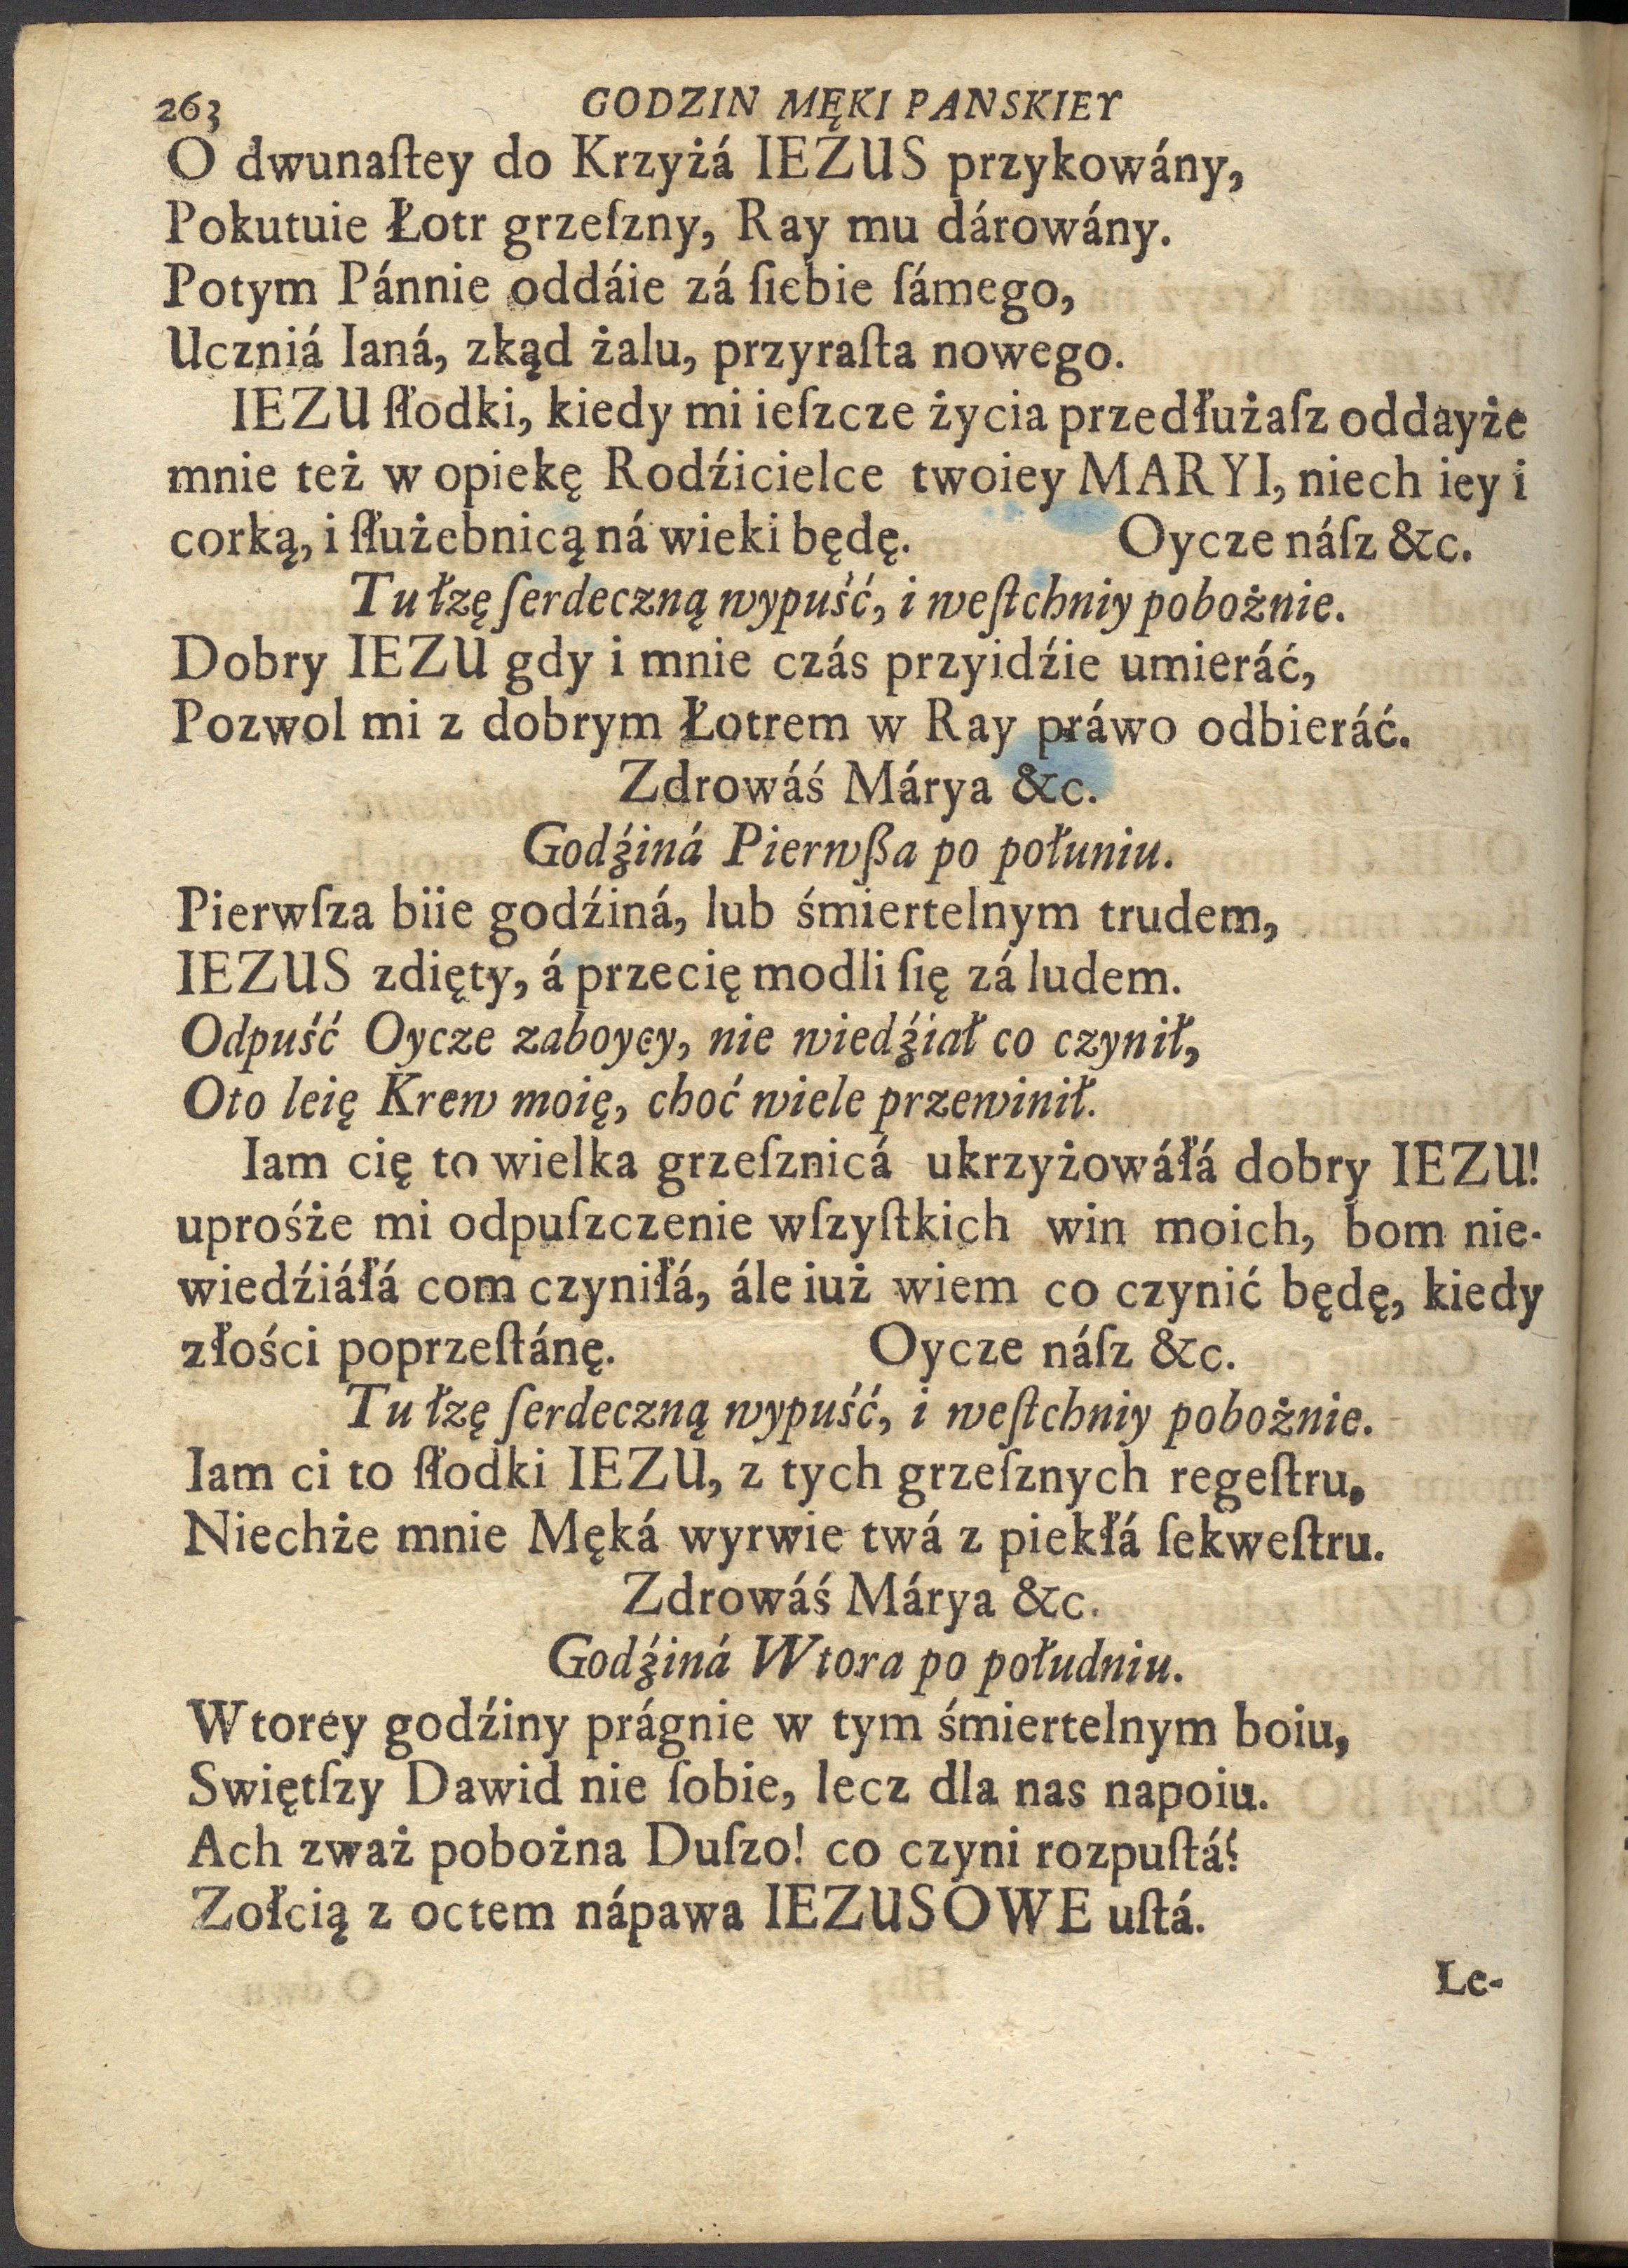 263 GODZIN MĘKI PANSKIEY
O dwunaſtey do Krzyżá IEZUS przykowány,
Pokutuie Łotr grzeſzny, Ray mu dárowány.
Potym Pánnie oddáie zá ſiebie ſámego,
Uczniá Ianá, zkąd żalu, przyraſta nowego.
IEZU ſłodki, kiedy mi ieſzcze życia przedłużaſz oddayże
mnie też w opiekę Rodźicielce twoiey MARYI, niech iey i
corką, i ſłużebnicą ná wieki będę. Oycze náſz &c.
Tu łzę ſerdeczną wypuść, i weſtchniy pobożnie.
Dobry IEZU gdy i mnie czás przyidźie umieráć,
Pozwol mi z dobrym Łotrem w Ray práwo odbieráć.
Zdrowáś Márya &c.
Godźiná Pierwßa po połuniu.
Pierwſza biie godźiná, lub śmiertelnym trudem,
IEZUS zdięty, á przecię modli ſię zá ludem.
Odpuść Oycze zaboycy, nie wiedźiał co czynił,
Oto leię Krew moię, choć wiele przewinił.
Iam cię to wielka grzeſznicá ukrzyżowáłá dobry IEZU!
uprośże mi odpuſzczenie wſzyſtkich win moich, bom nie-
wiedźiáłá com czyniłá, ále iuż wiem co czynić będę, kiedy
złości poprzeſtánę. Oycze náſz &c.
Tu łzę ſerdeczną wypuść, i weſtchniy pobożnie.
Iam ci to ſłodki IEZU, z tych grzeſznych regeſtru,
Niechże mnie Męká wyrwie twá z piekłá ſekweſtru.
Zdrowáś Márya &c.
Godźiná Wtora po południu.
Wtorey godźiny prágnie w tym śmiertelnym boiu,
Swiętſzy Dawid nie ſobie, lecz dla nas napoiu.
Ach zważ pobożna Duſzo! co czyni rozpuſtá?
Zołcią z octem nápawa IEZUSOWE uſtá.
Le-